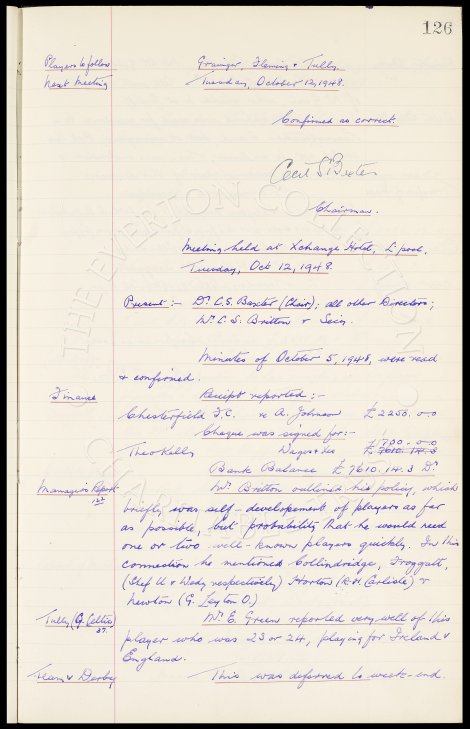 126
Players to follow Grainger, Fleming & Tully.
Next Meeting Tuesday, October 12, 1948.
Confirmed as correct.
Cecil S Baxter
Chairman.
Meeting held at Xchange Hotel, L'pool,
Tuesday, Oct 12, 1948.
Present :- Dr. C.S. Baxter (Chair); all other Directors;
Mr. C. S. Britton & Secy.
Minutes of October 5, 1948, were read
& confirmed.
Finance Receipt reported :-
Chesterfield F.C. re A. Johnson £2250. 0-0
Cheque was signed for :-
Theo Kelly Wages &c £1700. 0-0
£ 7610. 14. 3
Bank Balance £7610. 14. 3 Dr
Manager's Report Mr. Britton outlined his policy, which
1st
briefly, was self-developement of players as far
as possible, but probability that he would need
one or two well-known players quickly. In this
connection he mentioned Collindridge, Froggatt,
(Shef U & Wedy respectively) Horton (R.H. Carlisle) &
Newton (G. Leyton O.)
Tully (G. Celtic) Mr. E. Green reported very well of this
player who was 23 or 24, playing for Ireland v
England.
Team v Derby This was deferred to week-end.
THE EVERTON COLLECTION